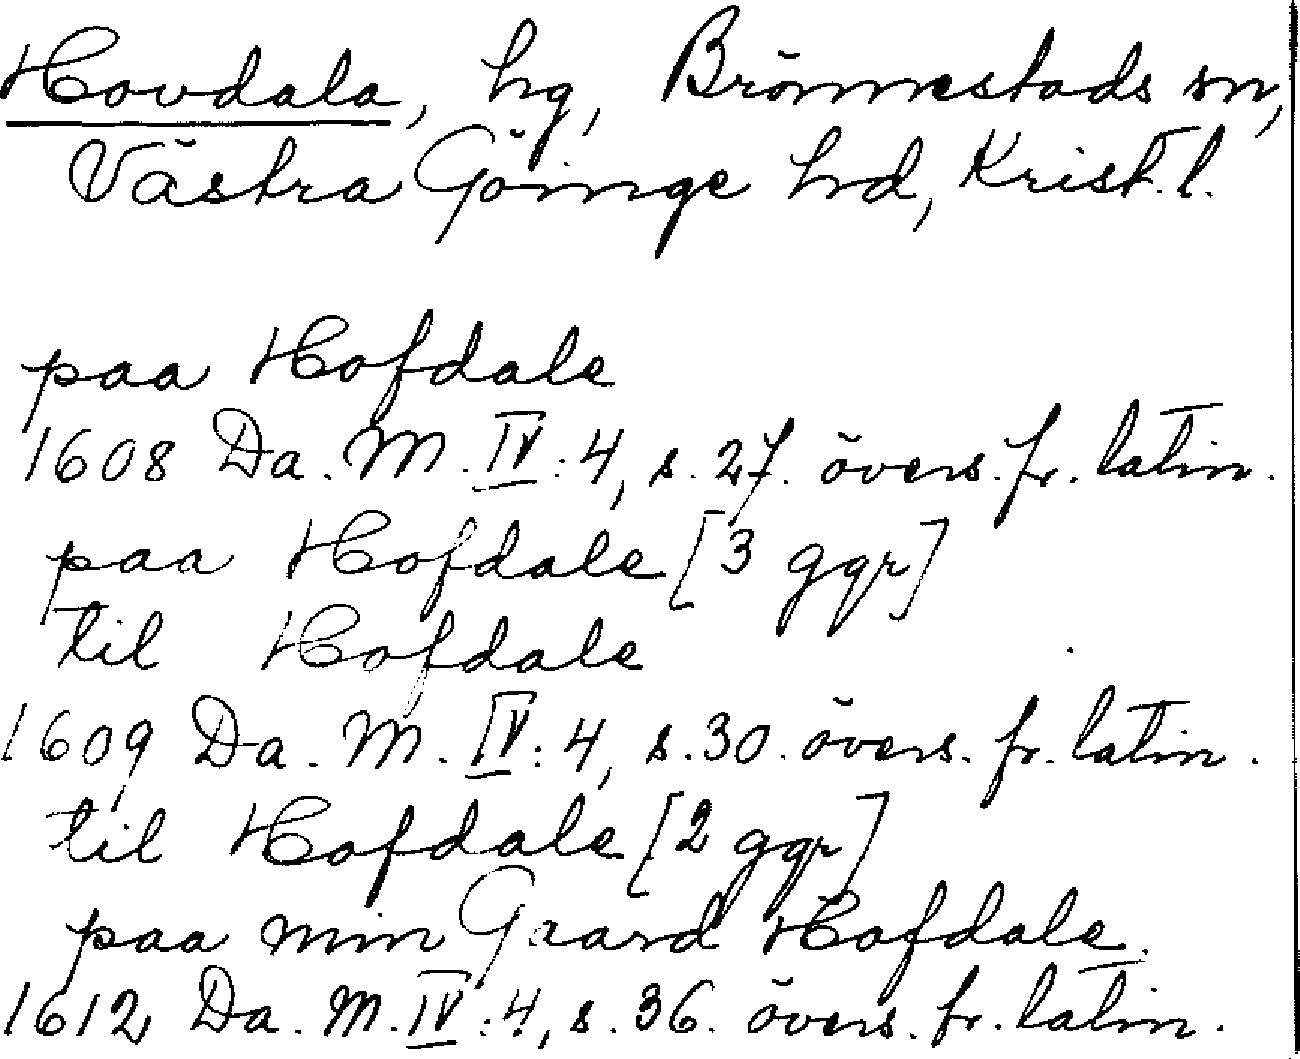 Hovdala, hg, Brönnestads sn,
Västra Göinge hd, Krist. l.
paa Hofdale
1608 Da. M. IV: 4, s. 27. övers. fr. latin.
paa Hofdale [3 ggr]
til Hofdale
1609 Da. M. IV: 4, s. 30. övers. fr. latin.
til Hofdale [2 ggr]
paa min Gaard Hofdale.
1612 Da. M. IV: 4, s. 36. övers. fr. latin.